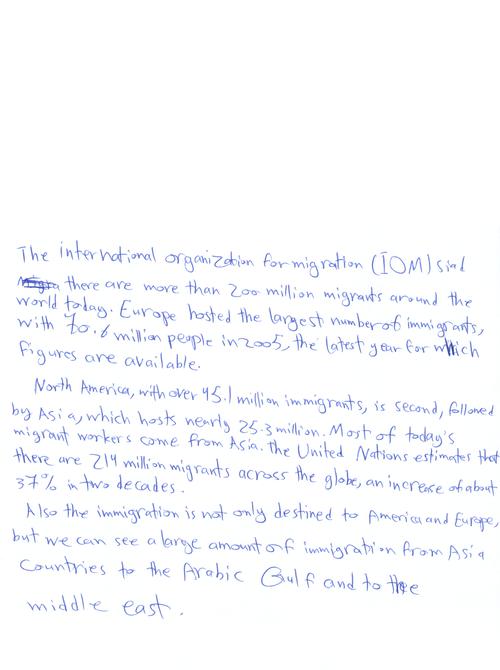 The international organization for migration (IOM) siad
there are more than 200 million migrants around the
world today. Europe hosted the largest number of immigrants,
with 70.6 million people in 2005, the latest year for which
figures are available.
North America, with over 45.1 million immigrants, is second, followed
by Asia, which hosts nearly 25.3 million. Most of today's
migrant workers come from Asia. The United Nations estimates that
there are 214 million migrants across the globe, an increase of about
37% in two decades.
Also the immigration is not only destined to America and Europe,
but we can see a large amount of immigration from Asia
Countries to the Arabic Gulf and to the
middle east.